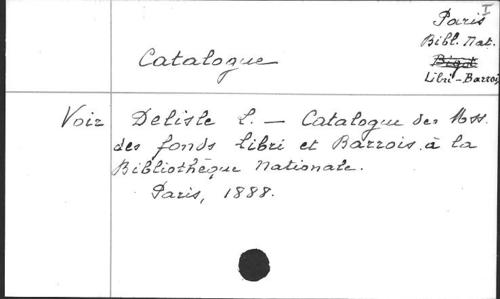 I
Paris
Bibl. Nat.
Bigot
Libri-Barrois
Catalogue
Voir Delisle L. — Catalogue des Mss.
des fonds Libri et Barrois à la
Bibliothèque Nationale.
Paris, 1888.